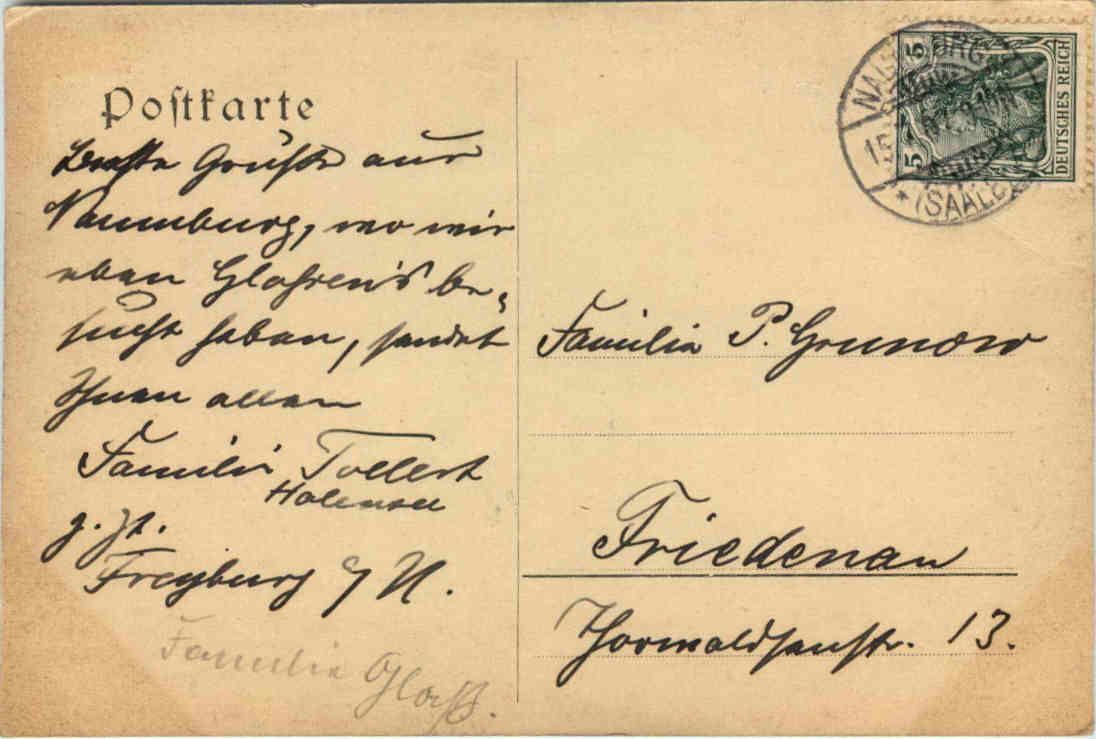 Postkarte
Beste Grüße aus
Naumburg, wo wir
eben be-
sucht haben, sendet
Ihnen allen
Familie Tollert
Halensee
z. Zt.
Freyburg a/U.
Familie Glaß.
Familie P. Grunow
Friedenau
Thorwaldsenstr. 13.
NAUMBURG
(SAALE)
5
5
DEUTSCHES REICH